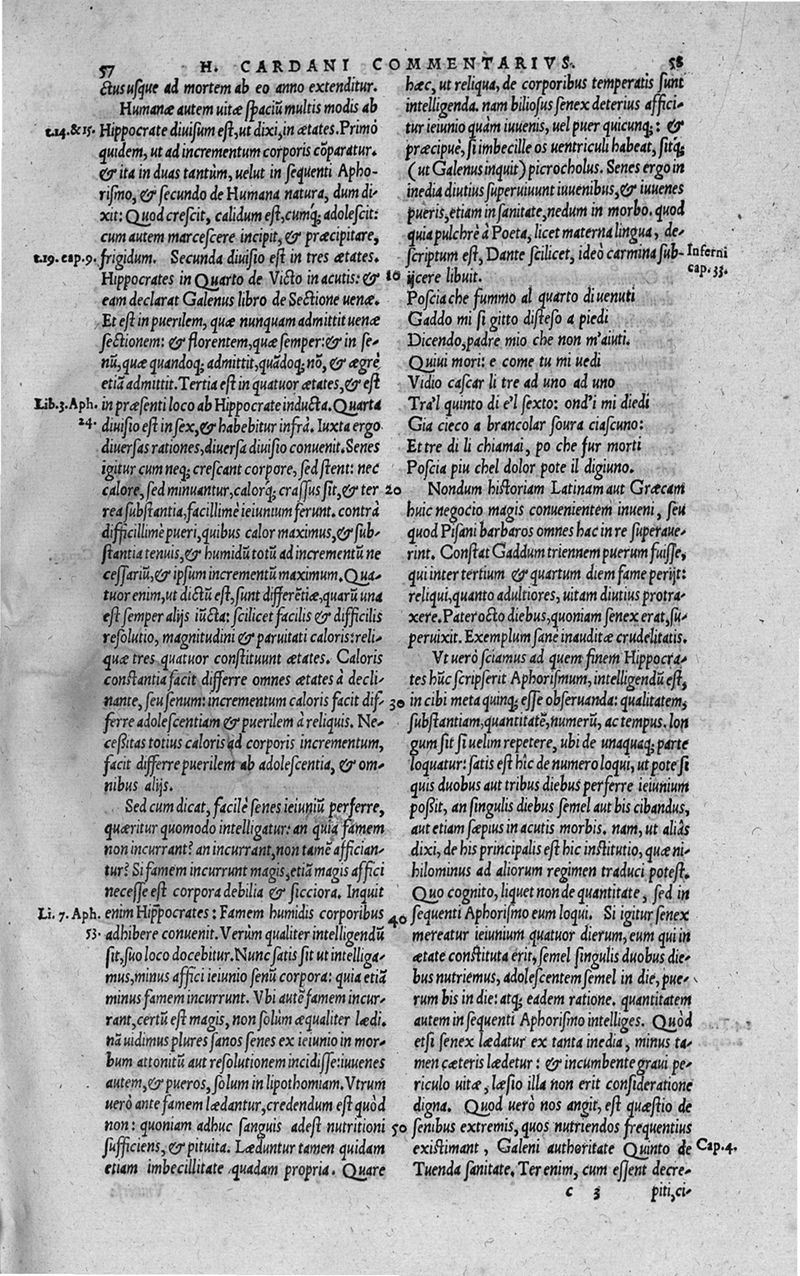 57
H. CARDANI COMMENTARIVS.
58
ctus usque ad mortem ab eo anno extenditur.
Humanæ autem uitæ spaciũ multis modis ab
t.14. & 15.
Hippocrate diuisum est, ut dixi, in ætates. Primò
quidem, ut ad incrementum corporis cõparatur.
& ita in duas tantùm, uelut in sequenti Apho-
rismo, & secundo de Humana natura, dum di-
xit: Quod crescit, calidum est, cumq; adolescit:
cum autem marcescere incipit, & præcipitare,
t.19. cap.9.
frigidum. Secunda diuisio est in tres ætates.
Hippocrates in Quarto de Victo in acutis: &
10
eam declarat Galenus libro de Sectione uenæ.
Et est in puerilem, quæ nunquam admittit uenæ
sectionem: & florentem, quæ semper: & in se-
nũ, quæ quandoq; admittit, quãdoq; nõ, & ægrè
etiã admittit. Tertia est in quatuor ætates, & est
Lib.3. Aph.
24.
in præsenti loco ab Hippocrate inducta. Quarta
diuisio est in sex, & habebitur infrà. Iuxta ergo
diuersas rationes, diuersa diuisio conuenit. Senes
igitur cum neq; crescant corpore, sed stent: nec
calore, sed minuantur, calorq; crassus sit, & ter
20
rea substantia, facillimè ieiunium ferunt. contrà
difficillimè pueri, quibus calor maximus, & sub-
stantia tenuis, & humidũ totũ ad incrementũ ne
cessariũ, & ipsum incrementũ maximum. Qua-
tuor enim, ut dictũ est, sunt differẽtiæ, quarũ una
est semper alijs iũcta: scilicet facilis & difficilis
resolutio, magnitudini & paruitati caloris: reli-
quæ tres quatuor constituunt ætates. Caloris
constantia facit differre omnes ætates à decli-
nante, seu senum: incrementum caloris facit dif-
30
ferre adolescentiam & puerilem à reliquis. Ne-
cessitas totius caloris ad corporis incrementum,
facit differre puerilem ab adolescentia, & om-
nibus alijs.
Sed cum dicat, facilè senes ieiuniũ perferre,
quæritur quomodo intelligatur: an quia famem
non incurrant? an incurrant, non tamẽ affician-
tur? Si famem incurrunt magis, etiã magis affici
necesse est corpora debilia & sicciora. Inquit
Li. 7. Aph.
53.
enim Hippocrates: Famem humidis corporibus
40
adhibere conuenit. Verùm qualiter intelligendũ
sit, suo loco docebitur. Nunc satis sit ut intelliga-
mus, minus affici ieiunio senũ corpora: quia etiã
minus famem incurrunt. Vbi autẽ famem incur-
rant, certũ est magis, non solùm æqualiter lædi.
nã uidimus plures sanos senes ex ieiunio in mor-
bum attonitũ aut resolutionem incidisse: iuuenes
autem, & pueros, solùm in lipothomiam. Vtrum
uerò ante famem lædantur, credendum est quòd
non: quoniam adhuc sanguis adest nutritioni
50
sufficiens, & pituita. Læduntur tamen quidam
etiam imbecillitate quadam propria. Quare
hæc, ut reliqua, de corporibus temperatis sunt
intelligenda. nam biliosus senex deterius affici-
tur ieiunio quàm iuuenis, uel puer quicunq;: &
præcipuè, si imbecille os uentriculi habeat, sitq;
(ut Galenus inquit) picrocholus. Senes ergo in
inedia diutius superuiuunt iuuenibus, & iuuenes
pueris, etiam in sanitate, nedum in morbo. quod
quia pulchrè à Poeta, licet materna lingua, de-
scriptum est, Dante scilicet, ideò carmina sub-
Inferni
cap.33.
ijcere libuit.
Poscia che fummo al quarto di uenuti
Gaddo mi si gitto disteso a piedi
Dicendo, padre mio che non m'aiuti.
Quiui mori: e come tu mi uedi
Vidio cascar li tre ad uno ad uno
Tra'l quinto di e'l sexto: ond'i mi diedi
Gia cieco a brancolar soura ciascuno:
Et tre di li chiamai, po che fur morti
Poscia piu chel dolor pote il digiuno.
Nondum historiam Latinam aut Græcam
huic negocio magis conuenientem inueni, seu
quod Pisani barbaros omnes hac in re superaue-
rint. Constat Gaddum triennem puerum fuisse,
qui inter tertium & quartum diem fame perijt:
reliqui, quanto adultiores, uitam diutius protra-
xere. Pater octo diebus, quoniam senex erat, su-
peruixit. Exemplum sane inauditæ crudelitatis.
Vt uerò sciamus ad quem finem Hippocra-
tes hũc scripserit Aphorismum, intelligendũ est,
in cibi meta quinq; esse obseruanda: qualitatem,
substantiam, quantitatẽ, numerũ, ac tempus. lon
gum sit si uelim repetere, ubi de unaquaq; parte
loquatur: satis est hic de numero loqui, ut pote si
quis duobus aut tribus diebus perferre ieiunium
possit, an singulis diebus semel aut bis cibandus,
aut etiam sæpius in acutis morbis. nam, ut aliàs
dixi, de his principalis est hic institutio, quæ ni-
hilominus ad aliorum regimen traduci potest.
Quo cognito, liquet non de quantitate, sed in
sequenti Aphorismo eum loqui. Si igitur senex
mereatur ieiunium quatuor dierum, eum qui in
ætate constituta erit, semel singulis duobus die-
bus nutriemus, adolescentem semel in die, pue-
rum bis in die: atq; eadem ratione. quantitatem
autem in sequenti Aphorismo intelliges. Quòd
etsi senex lædatur ex tanta inedia, minus ta-
men cæteris lædetur: & incumbente graui pe-
riculo uitæ, læsio illa non erit consideratione
digna. Quod uerò nos angit, est quæstio de
senibus extremis, quos nutriendos frequentius
existimant, Galeni authoritate Quinto de
Cap.4.
Tuenda sanitate. Ter enim, cum essent decre-
c 3
piti, ci-